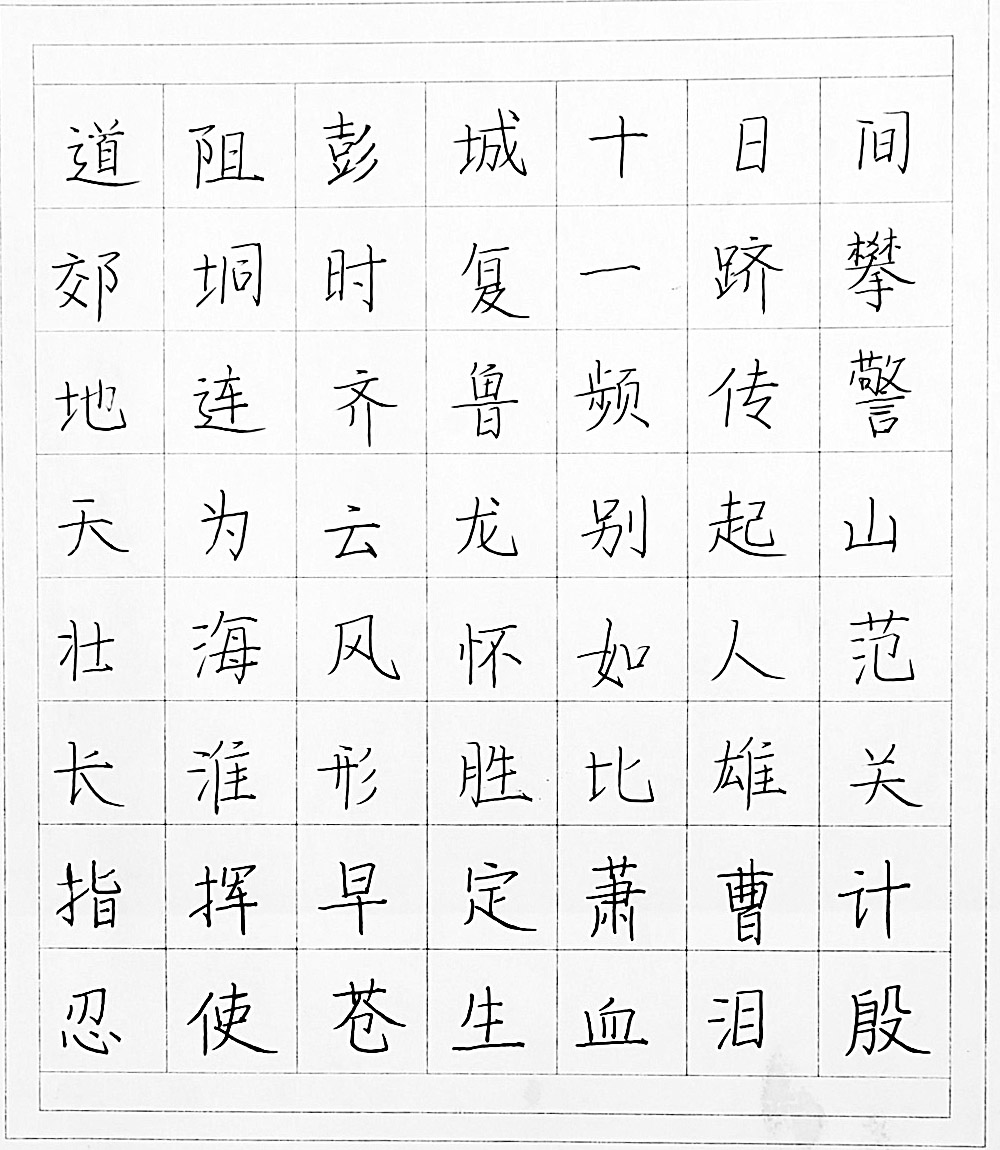 道阻彭城十日间
郊垌时复一跻攀
地连齐鲁频传警
天为云龙别起山
壮海风怀如人范
长淮形胜比雄关
指挥早定萧曹计
忍使苍生血泪殷